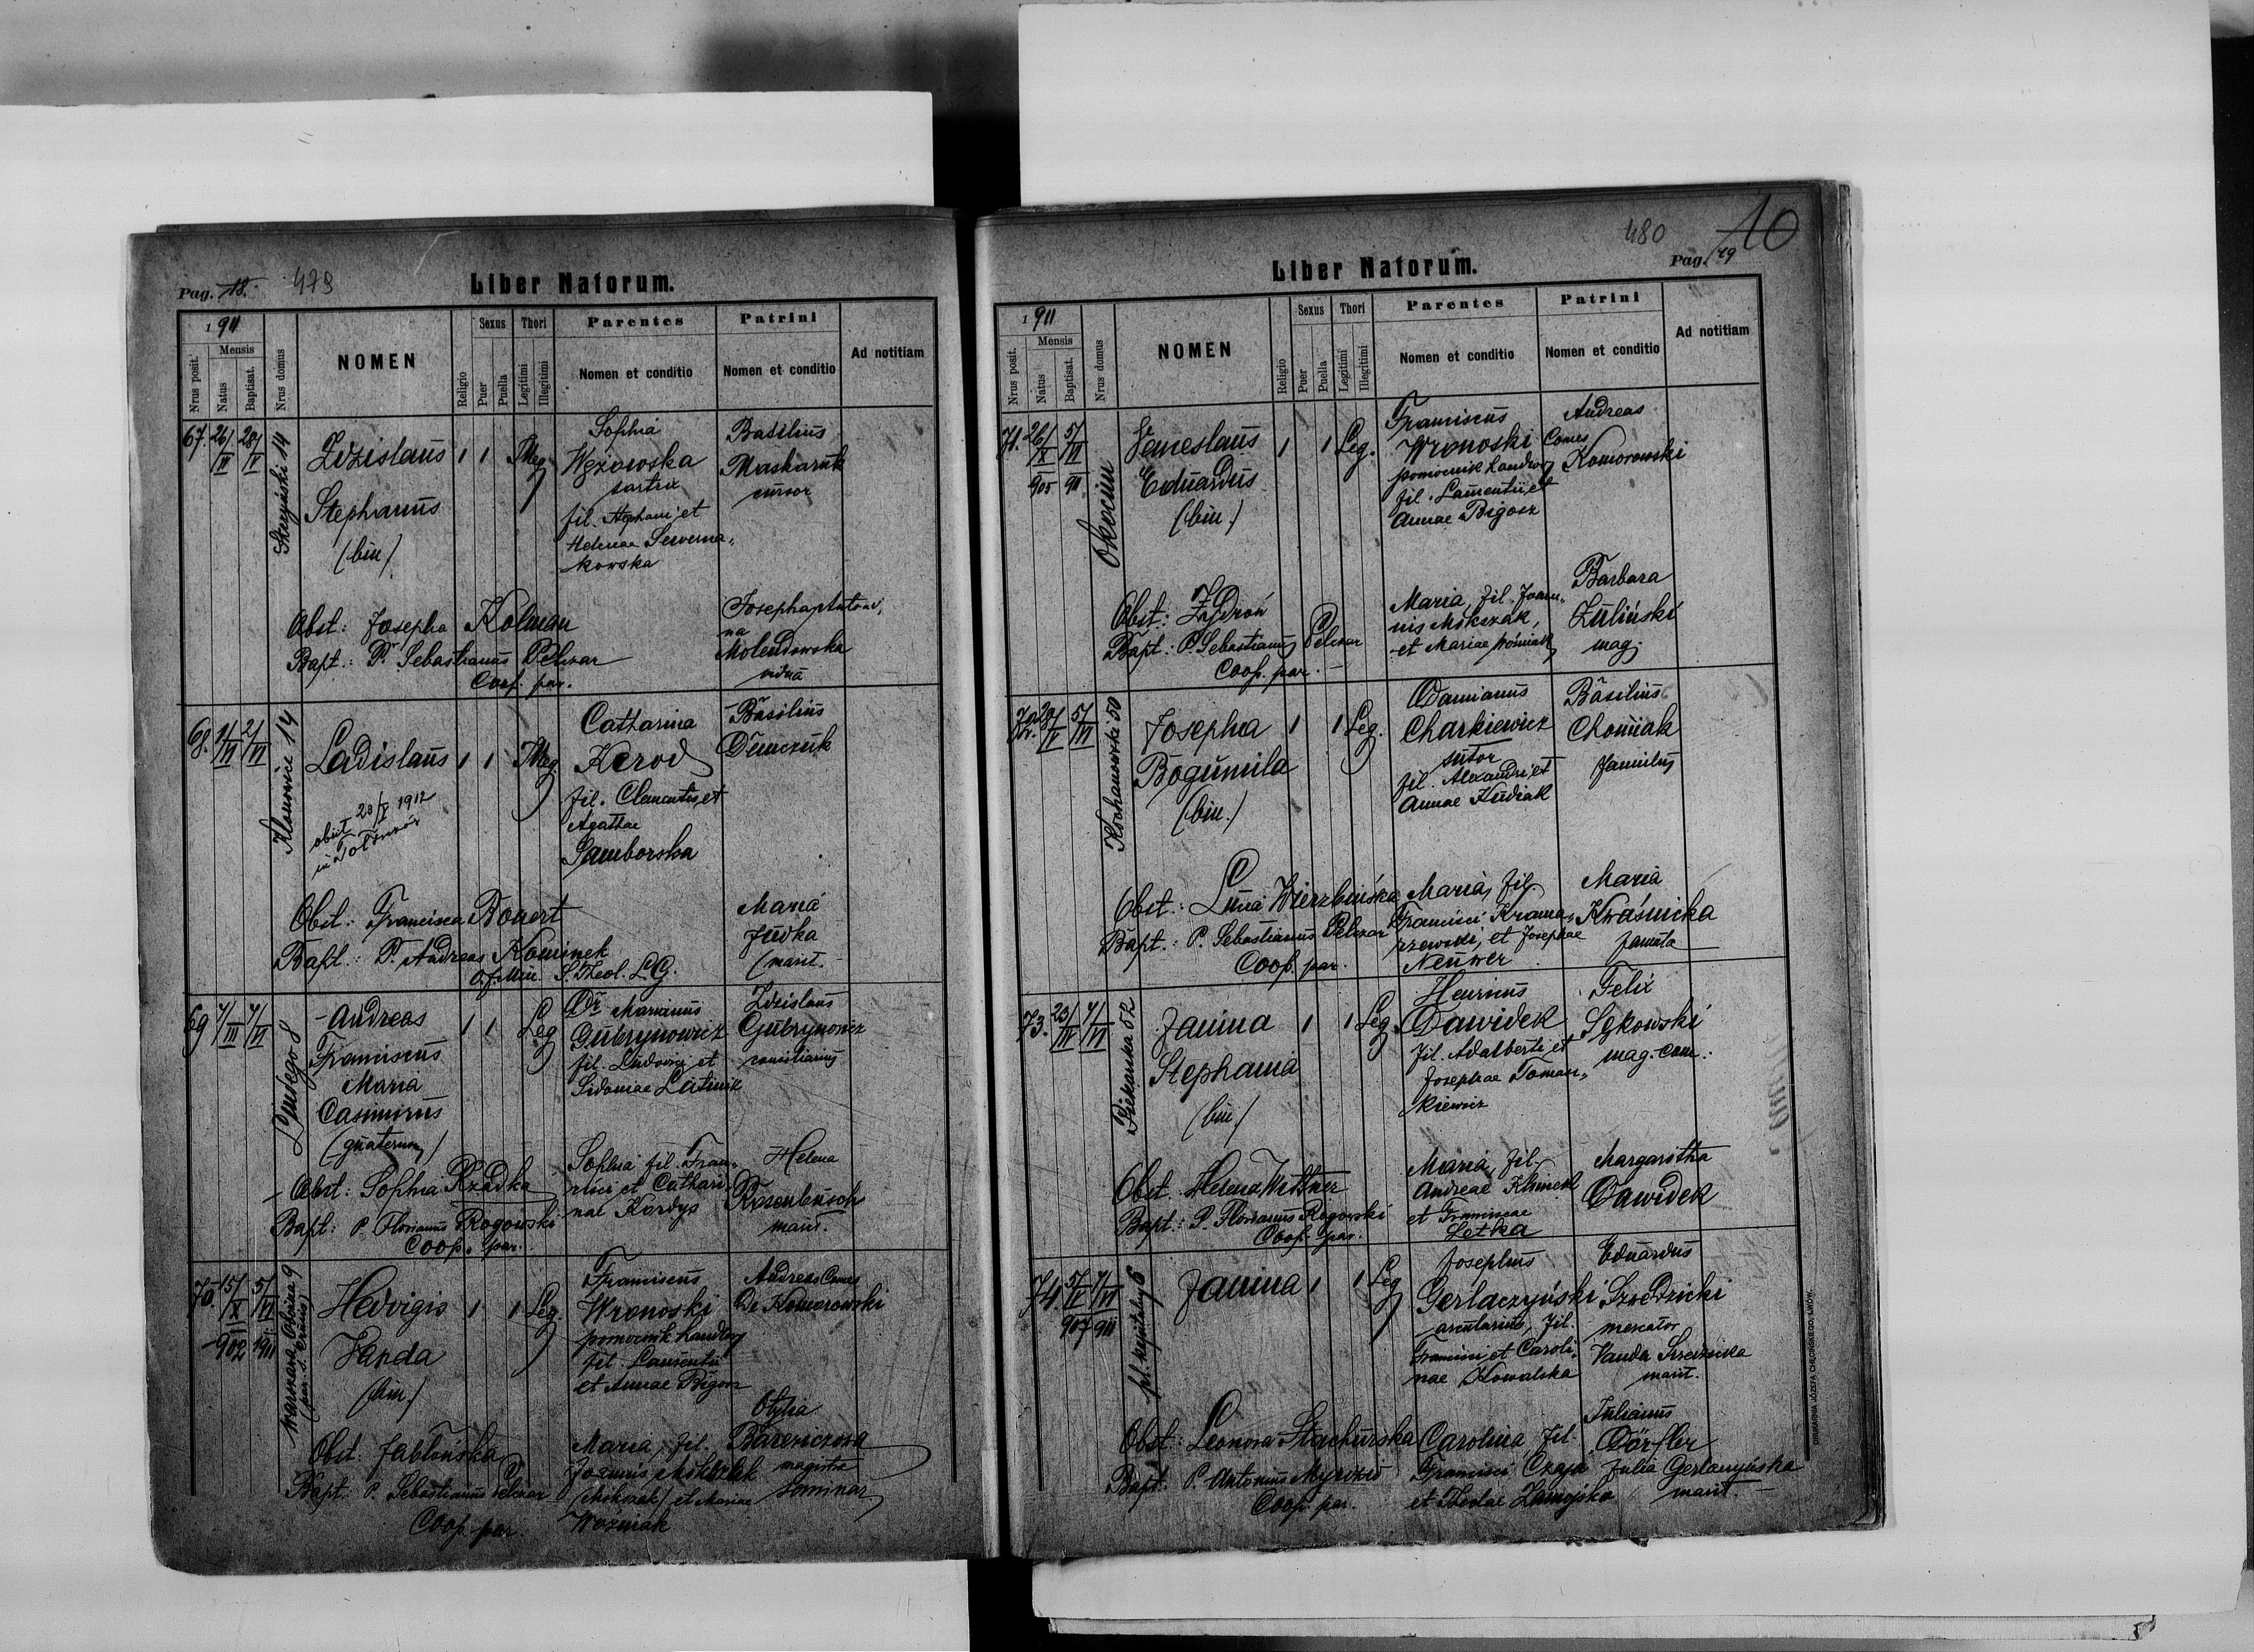 Pag. 18. 479
Liber Natorum.
1911
Mensis
Nrus posit.
Natus
Baptisat.
Nrus domus
NOMEN
Religio
Sexus
Puer
Puella
Thori
Legitimi
Illegitimi
Parentes
Nomen et conditio
Patrini
Nomen et conditio
Ad notitiam
67. 26/ 28/
14
Zdzislaus 1 1
Stephanus
(bin)
Sophia
Wężowska
sartrix
fil. Stephani et
Helenae
kowska
Basilius
Maskaruk
cursor
Obst: Josepha Kolman
Bapt.: P. Sebastianus Pelczar
Coop. par.
Josepha Antoni,
na
Molendowska
vidua
68. 1/VI 2/VI
Klonowice 14
Ladislaus 1 1 Illeg
obiit 23/X 1912
in
Catharina
Kerod
fil. Clementis et
Agathae
Samborska
Basilius
Demczuk
Obst: Francisca Bonert
Bapt.: P. Andreas Kominek
O. f. Min. S. Theol. L.G.
Maria
Judka
marit.
69 7/III 7/VI
Lindego 8
Andreas 1 1 Leg
Franciscus
Maria
Casimirus
(quaternom)
Dr Marianus
Gubrynowicz
fil. Ludovici et
Sidoniae Latinik
Zdzislaus
Gubrynowicz
consiliarius
Obst: Sophia Rządka
Bapt: P. Florianus Rogowski
Coop. par.
Sophia fil. Fran,
cisci et Cathari
nae Kordys
Helena
Rosenbusch
marit.
70. 15/X 902 5/VI 1911
Hedvigis 1 1 Leg.
Vanda
(bin.)
Franciscus
Wronoski
pomocnik handlowy
fil. Laurentii
et Annae Bigosz
Andreas Comes
De Komorowski
Obst: Jabłońska
Bapt: P. Sebastianus Pelczar
Coop. par.
Maria, fil.
Joannis Mokrzak
(Mokszak) et Mariae
Woźniak
Otylia
Barewiczowa
magistra
seminar
480 10
Pag. 19
Liber Natorum.
1911
Mensis
Nrus posit.
Natus
Baptisat.
Nrus domus
NOMEN
Religio
Sexus
Puer
Puella
Thori
Legitimi
Illegitimi
Parentes
Nomen et conditio
Patrini
Nomen et conditio
Ad notitiam
71. 26/X 905 5/VI 911
Okocim
Venceslaus 1 1 Leg.
Eduardus
(bin.)
Franciscus
Wronoski
pomocnik handlowy
fil. Laurentii et
Annae Bigosz
Andreas
Comes
Komorowski
Obst: Zydroń
Bapt.: P. Sebastianus Pelczar
Coop. par.
Maria, fil. Joan,
nis Mokszak,
et Mariae Woźniak
Barbara
Zulińskí
mag.
72. 29/V 5/VI
Kochanowski 50
Josepha 1 1 Leg.
Bogumila
(bin.)
Damianus
Charkiewicz
sutor
fil. Alexandri et
Annae Kudiak
Basilius
Chomiak
famulus
Obst.: Lucia Wierzbińska
Bapt.: P. Sebastianus Pelczar
Coop. par.
Maria, fil.
Francisci Krama,
rzewski, et Josephae
Neuwer
Maria
Kwaśnicka
famula
73. 23/ 7/VI
Piekarska 52
Janina 1 1 Leg.
Stephania
(bin)
Henricus
Dawidek
fil. Adalberti et
Josephae Toman,
kiewicz
Felix
Sękowski
mag. com.
Obst: Helena Wittner
Bapt.: P. Florianus Rogowski
Coop. par.
Maria, fil.
Andreae Klimek
et Franciscae
Letka
Margaritha
Dawidek
74. 5/ 907 7/VI 911
6
Janina 1 1 Leg
Josephus
Gerlaczyński
arcularius, fil.
Francisci et Caroli,
nae Kowalska
Eduardus
Szwedzicki
mercator
Vanda Szwedzicka
marit.
Obst: Leonora Stachurska
Bapt: P. Antonius Myrdzio
Coop. par.
Carolina, fil.
Francisci Czaja
et Theclae Zamojska
Julianus
Dörfler
Julia Gerlaczyńska
marit.
DRUKARNIA JÓZEFA CHĘCIŃSKIEGO, LWÓW.